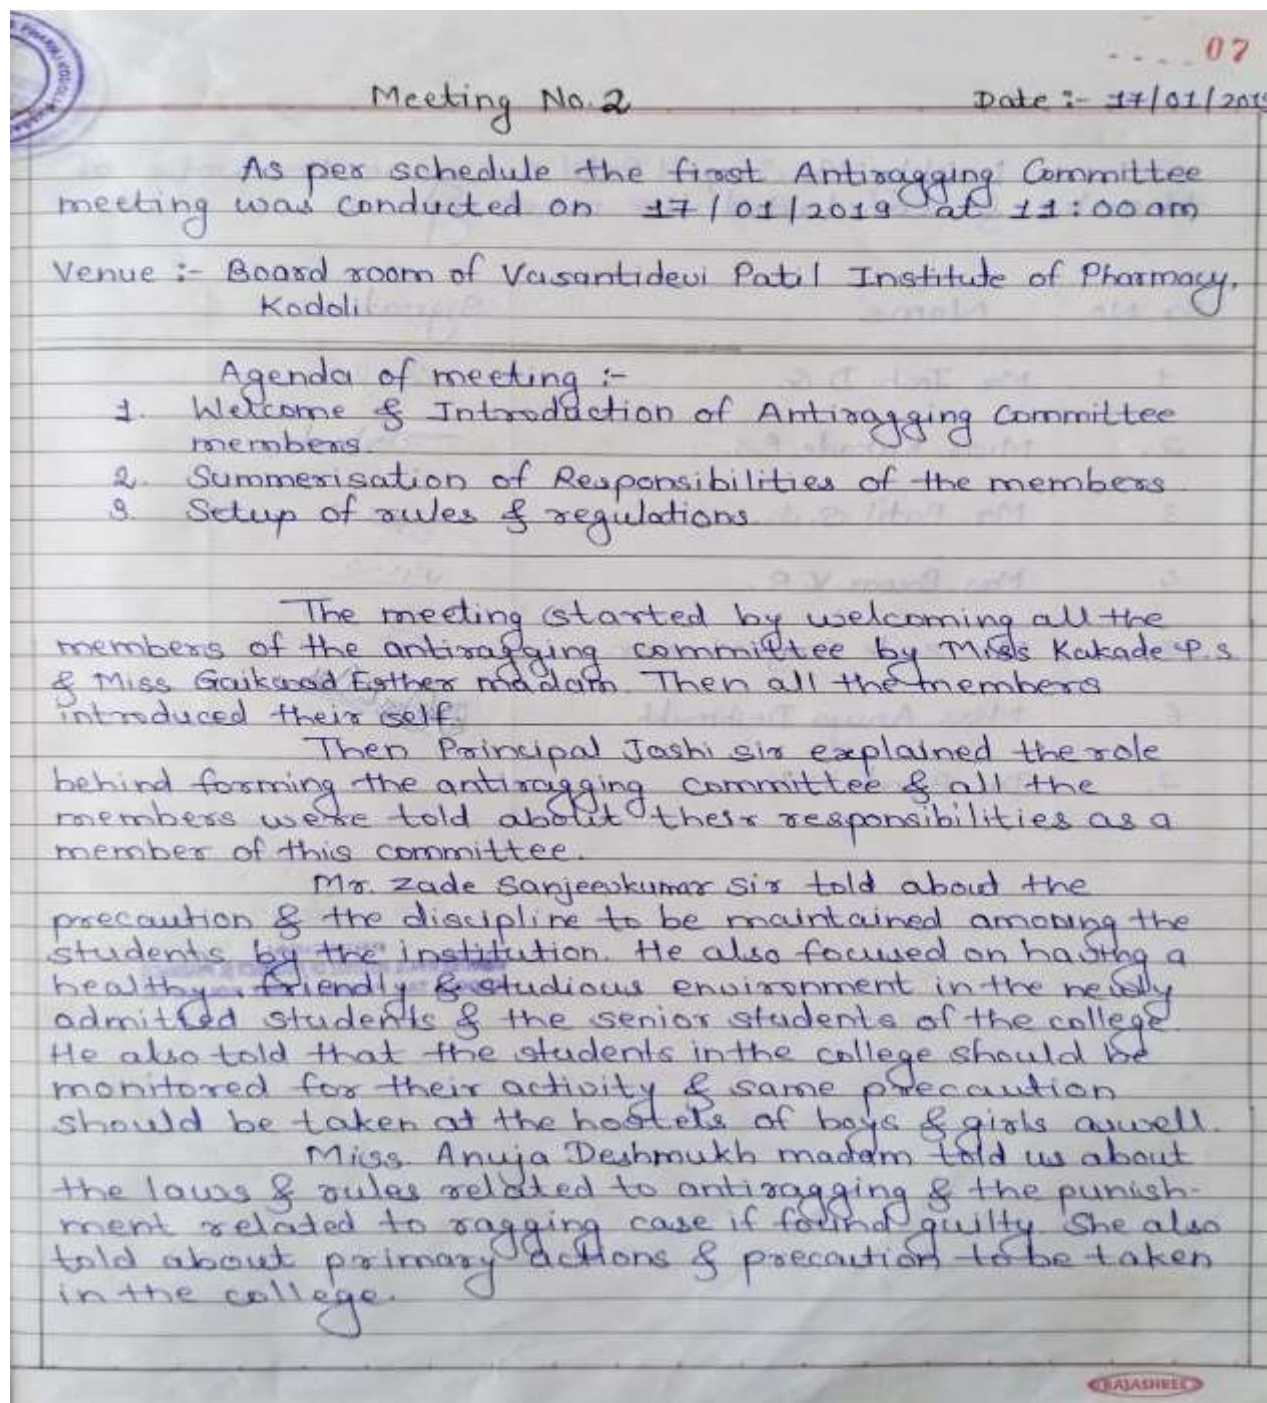 07
Meeting No. 2 Date :- 17/01/201
As per schedule the first Antiragging Committee
meeting was conducted on 17/01/2019 at 11:00am
Venue :- Board room of Vasantidevi Patil Institute of Pharmacy,
Kodoli
Agenda of meeting :-
1. Welcome & Introduction of Antiragging Committee
members.
2. Summerisation of Responsibilities of the members
3. Setup of rules & regulations
The meeting started by welcoming all the
members of the antiragging committee by Miss Kakade P.S
& Miss Gaikwad Esther madam. Then all the members
introduced their self.
Then Principal Joshi sir explained the role
behind forming the antiragging committee & all the
members were told about their responsibilities as a
member of this committee.
Mr. Zade Sanjeevkumar sir told about the
precaution & the discipline to be maintained amoung the
students by the institution. He also focused on having a
healthy, friendly & studious environment in the newly
admitted students & the senior students of the college.
He also told that the students in the college should be
monitored for their activity & same precaution
should be taken at the hostels of boys & girls aswell.
Miss. Anuja Deshmukh madam told us about
the laws & rules related to antiragging & the punish-
ment related to ragging case if found guilty. She also
told about primary actions & precaution to be taken
in the college.
RAJASHREE